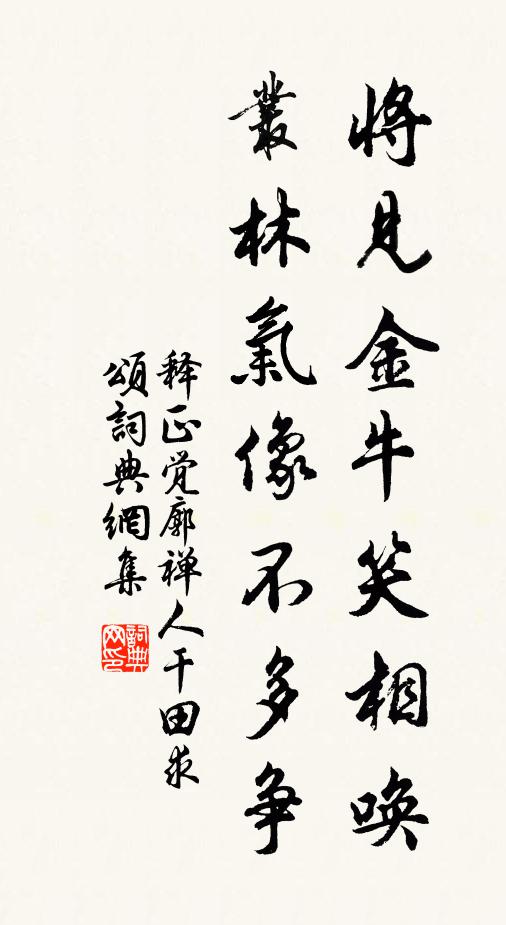 將見金牛笑相喚
叢林氣像不多爭
释正觉廓禅人干田求
頌詞典網集
詞典
网印